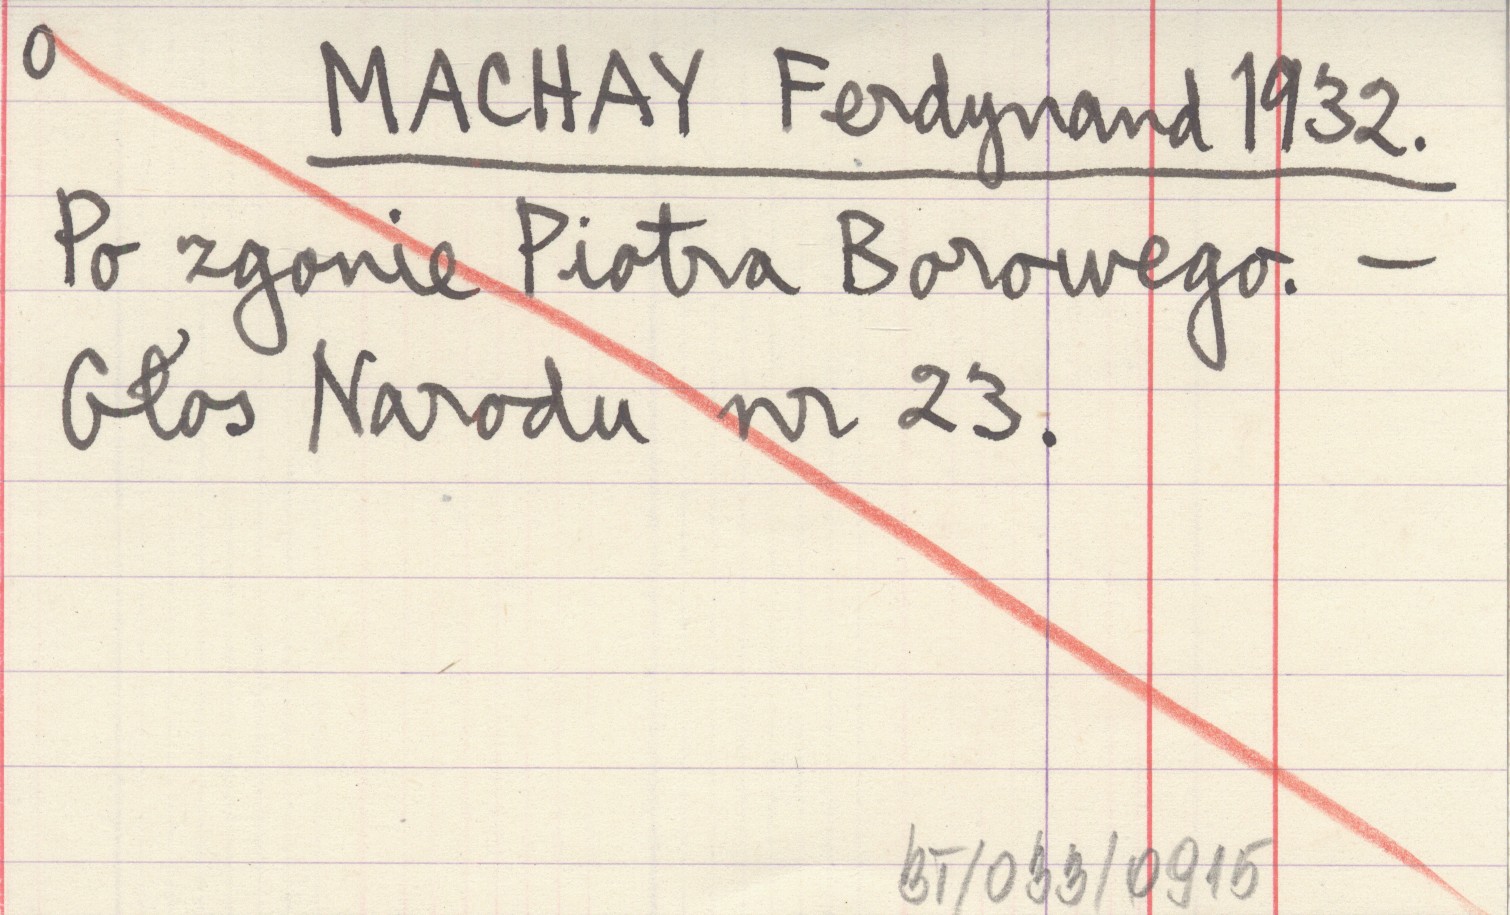 O
MACHAY Ferdynand 1932.
Po zgonie Piotra Borowego. –
Głos Narodu nr 23.
BT/033/0915